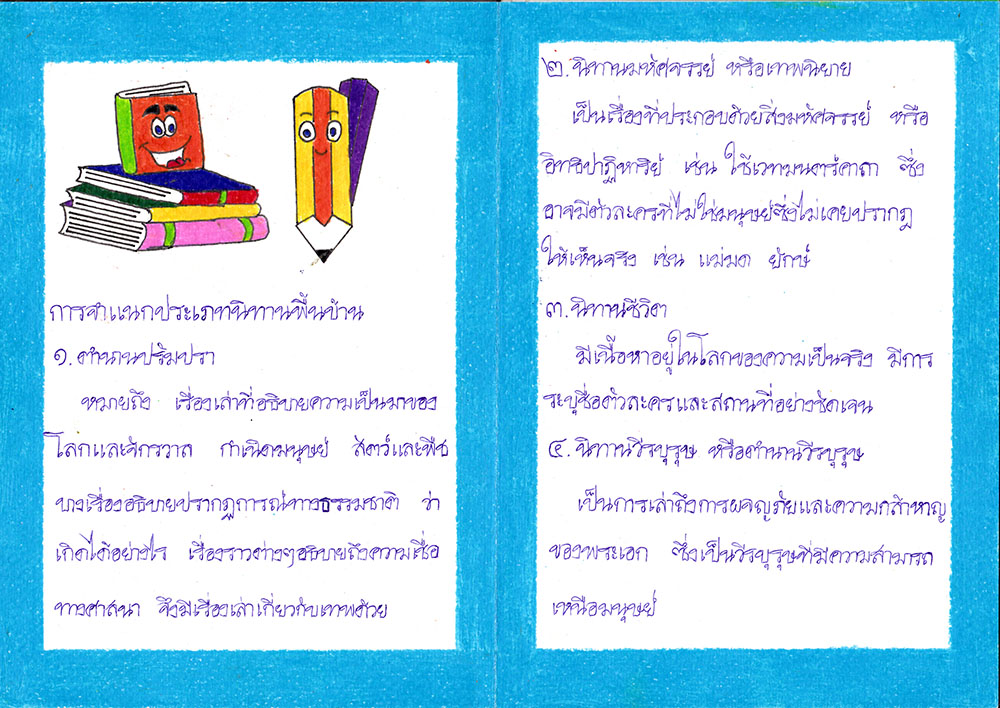 การจำแนกประเภทนิทานพื้นบ้าน
๑. ตำนานปรัมปรา
หมายถึง เรื่องเล่าที่อธิบายความเป็นมาของ
โลกและจักรวาล กำเนิดมนุษย์ สัตว์และพืช
บางเรื่องอธิบายปรากฏการณ์ทางธรรมชาติ ว่า
เกิดได้อย่างไร เรื่องราวต่างๆอธิบายถึงความเชื่อ
ทางศาสนา จึงมีเรื่องเล่าเกี่ยวกับเทพด้วย
๒. นิทานมหัศจรรย์ หรือเทพนิยาย
เป็นเรื่องที่ประกอบด้วยสิ่งมหัศจรรย์ หรือ
อิทธิปาฏิหาริย์ เช่น ใช้เวทมนตร์คาถา ซึ่ง
อาจมีตัวละครที่ไม่ใช่มนุษย์ซึ่งไม่เคยปรากฏ
ให้เห็นจริง เช่น แม่มด ยักษ์
๓. นิทานชีวิต
มีเนื้อหาอยู่ในโลกของความเป็นจริง มีการ
ระบุชื่อตัวละครและสถานที่อย่างชัดเจน
๔. นิทานวีรบุรุษ หรือตำนานวีรบุรุษ
เป็นการเล่าถึงการผจญภัยและความกล้าหาญ
ของพระเอก ซึ่งเป็นวีรบุรุษที่มีความสามารถ
เหนือมนุษย์